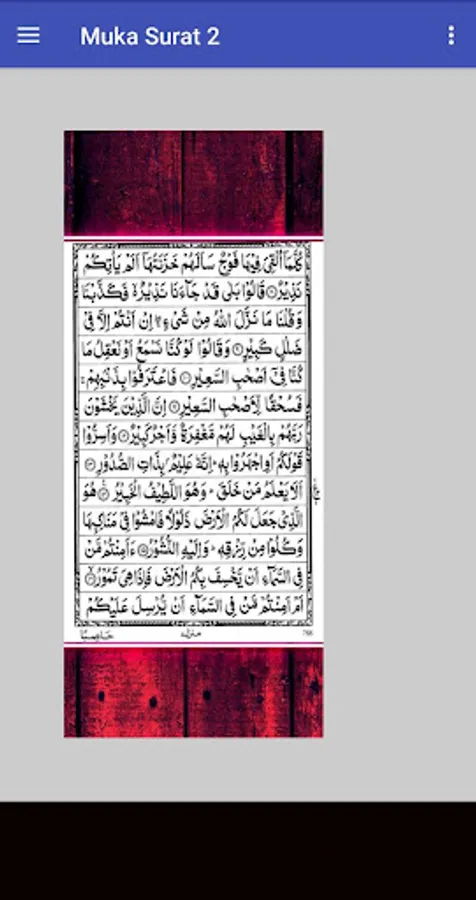 Muka Surat 2
كُلَّمَآ اُلْقِىَ فِيْهَا فَوْجٌ سَاَلَهُمْ خَزَنَتُهَآ اَلَمْ يَاْتِكُمْ
نَذِيْرٌ۝ قَالُوْا بَلٰى قَدْ جَآءَنَا نَذِيْرٌ ۙ فَكَذَّبْنَا
وَقُلْنَا مَا نَزَّلَ اللّٰهُ مِنْ شَىْءٍ ۚ اِنْ اَنْتُمْ اِلَّا فِىْ
ضَلٰلٍ كَبِيْرٍ۝ وَقَالُوْا لَوْ كُنَّا نَسْمَعُ اَوْ نَعْقِلُ مَا
كُنَّا فِىْٓ اَصْحٰبِ السَّعِيْرِ۝ فَاعْتَرَفُوْا بِذَنْۢبِهِمْ ۚ
فَسُحْقًا لِّاَصْحٰبِ السَّعِيْرِ۝ اِنَّ الَّذِيْنَ يَخْشَوْنَ
رَبَّهُمْ بِالْغَيْبِ لَهُمْ مَّغْفِرَةٌ وَّاَجْرٌ كَبِيْرٌ۝ وَاَسِرُّوْا
قَوْلَكُمْ اَوِ اجْهَرُوْا بِهٖ ؕ اِنَّهٗ عَلِيْمٌۢ بِذَاتِ الصُّدُوْرِ۝
اَلَا يَعْلَمُ مَنْ خَلَقَ ؕ وَهُوَ اللَّطِيْفُ الْخَبِيْرُ۝ هُوَ
الَّذِىْ جَعَلَ لَكُمُ الْاَرْضَ ذَلُوْلًا فَامْشُوْا فِىْ مَنَاكِبِهَا
وَكُلُوْا مِنْ رِّزْقِهٖ ؕ وَاِلَيْهِ النُّشُوْرُ۝ ءَاَمِنْتُمْ مَّنْ
فِى السَّمَآءِ اَنْ يَّخْسِفَ بِكُمُ الْاَرْضَ فَاِذَا هِىَ تَمُوْرُ۝
اَمْ اَمِنْتُمْ مَّنْ فِى السَّمَآءِ اَنْ يُّرْسِلَ عَلَيْكُمْ
حَاصِبًا منزل